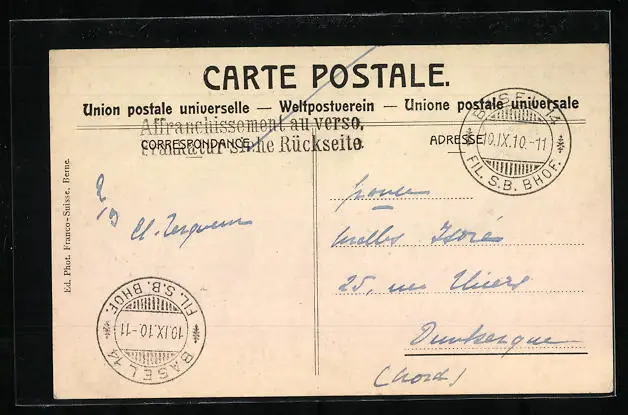 CARTE POSTALE.
Union postale universelle — Weltpostverein — Unione postale universale
Affranchissement au verso.
Frankatur siehe Rückseite.
CORRESPONDANCE.
ADRESSE
BASEL 14
10.IX.10.-11
FIL. S.B. BHOF.
Ed. Phot. Franco-Suisse, Berne.
Cl.
France
Isoré
25, rue
Dunkerque
(Nord)
BASEL 14
10.IX.10-11
FIL. S.B. BHOF.